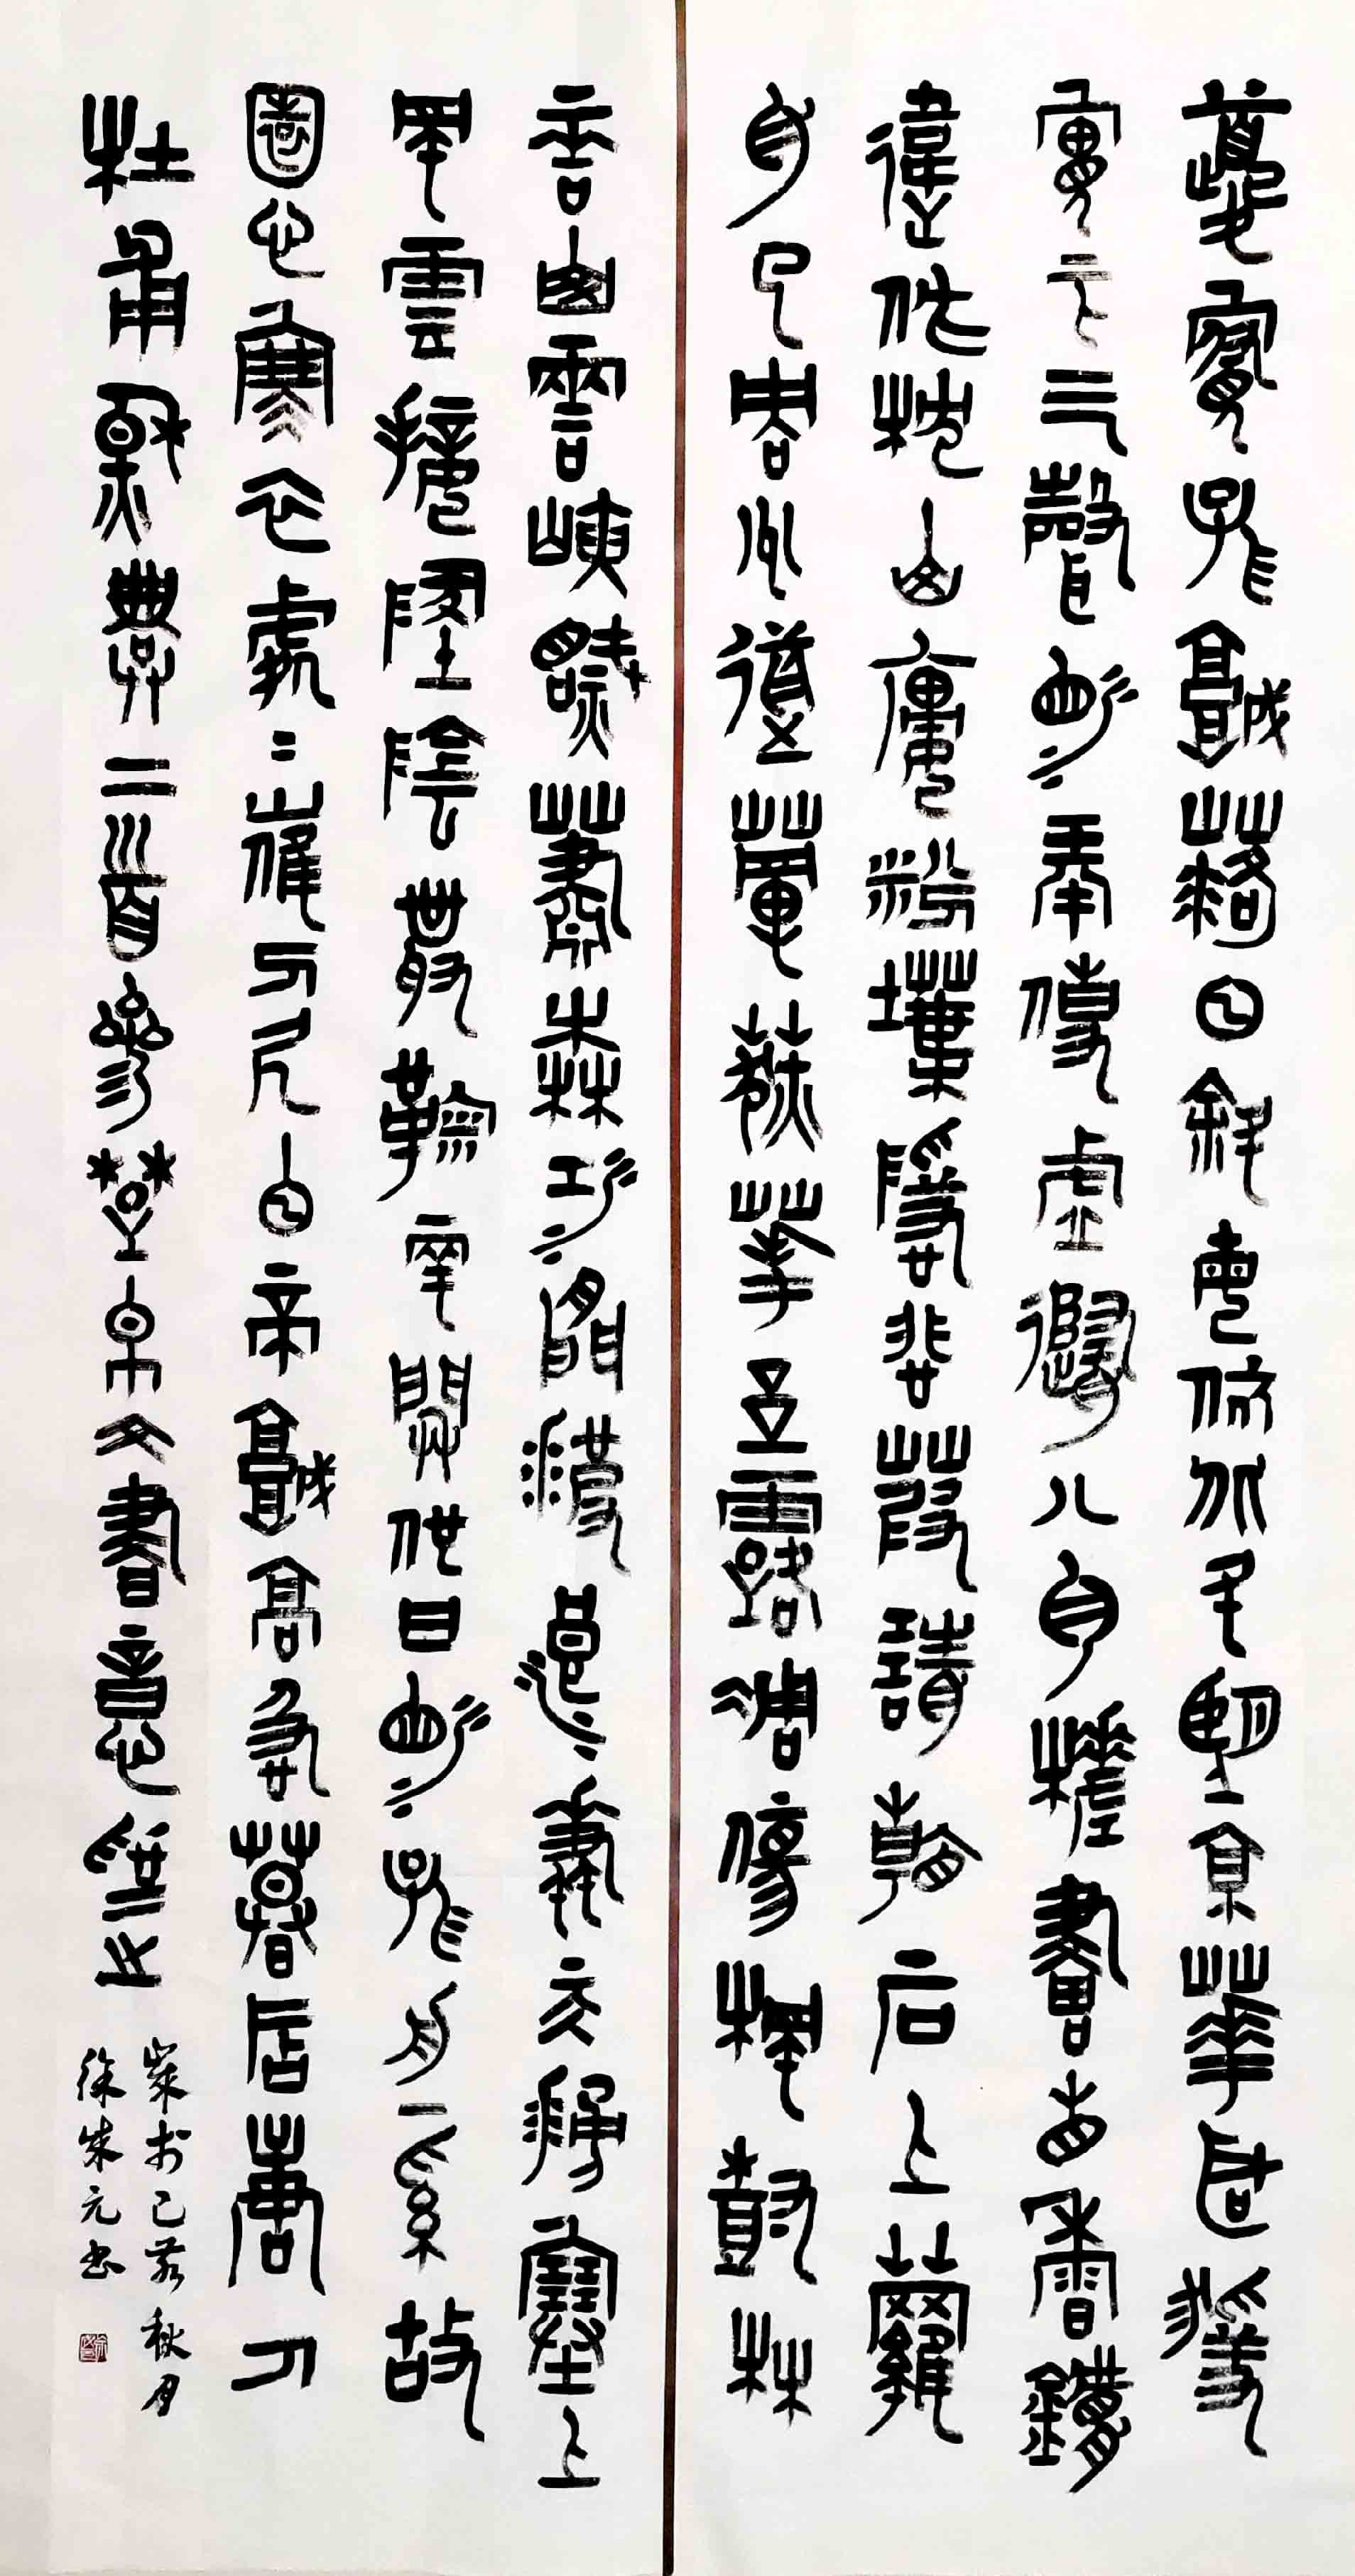 夔府孤城落日斜每依北斗望京華聽猿
實下三聲淚奉使虛隨八月槎畫省香爐
違伏枕山樓粉堞隱悲笳請看石上藤蘿
月已映洲前蘆荻花玉露凋傷楓樹林
巫山巫峽氣蕭森江間波浪兼天湧塞上
風雲接地陰叢菊兩開他日淚孤舟一繫故
園心寒衣處處催刀尺白帝城高急暮砧唐人
杜甫秋興二首參楚帛文書意為之
歲於己亥秋月
徐朱元書